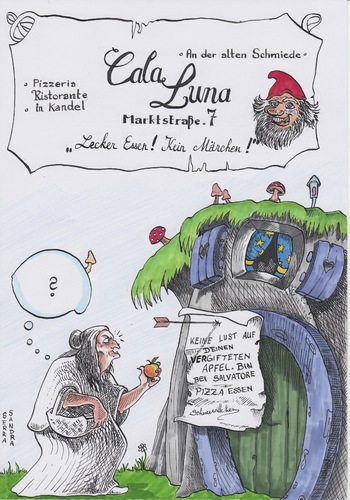 ° An der alten Schmiede °
Cala
Luna
° Pizzeria
Ristorante
° In Kandel
Marktstraße.7
"Lecker Essen! Kein Märchen!"
?
KEINE LUST AUF
DEINEN
VERGIFTETEN
APFEL. BIN
BEI SALVATORE
PIZZA ESSEN
Schneewittchen
SERRA
SANDRA